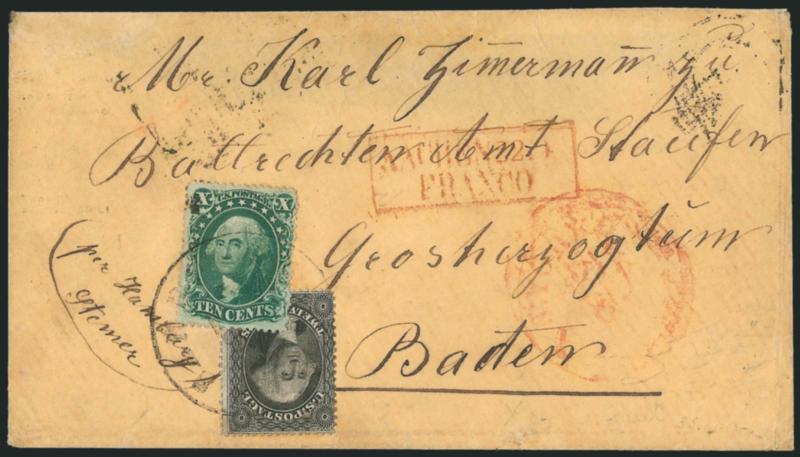 Mr. Karl Zim̄erman̄ zu
Ballrechten Amt Staufen
AACHEN
FRANCO
Grosherzogtum
Baden
per Hamburg
Stemer
X U.S. POSTAGE X
TEN CENTS
U.S. POSTAGE